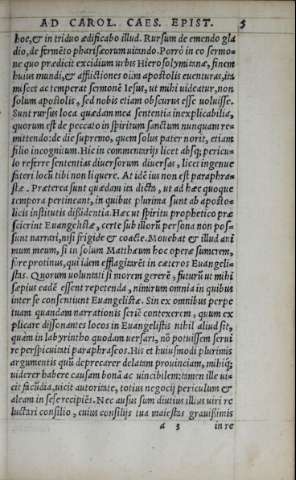 AD CAROL. CAES. EPIST. 5
hoc, & in triduo ædificabo illud. Rursum de emendo gla
dio, de fermẽto pharisæorum uitando. Porrò in eo sermo=
ne quo prædicit excidium urbis Hierosolymitanæ, finem
huius mundi, & afflictiones oim apostolis euenturas, ita
miscet ac temperat sermonẽ Iesus, ut mihi uideatur, non
solum apostolis, sed nobis etiam obscurus esse uoluisse.
Sunt rursus loca quædam mea sententia inexplicabilia,
quorum est de peccato in spiritum sanctum nunquam re=
mittendo: de die supremo, quem solus pater norit, etiam
filio incognitum. Hic in commentarijs licet absq; pericu=
lo referre sententias diuersorum diuersas, licet ingenue
fateri locũ tibi non liquere. At idẽ ius non est paraphra=
stæ. Præterea sunt quædam ita dicta, ut ad hæc quoque
tempora pertineant, in quibus plurima sunt ab aposto=
licis institutis dissidentia. Hæc ut spiritu prophetico præ
scierint Euangelistæ, certe sub illorũ persona non pos=
sunt narrari, nisi frigide & coacte. Mouebat & illud ani
mum meum, si in solum Matthæum hoc operæ sumerem,
fore protinus, qui idem efflagitarẽt in cæteros Euangeli=
stas. Quorum uoluntati si morem gererẽ, futurũ ut mihi
sæpius eadẽ essent repetenda, nimirum omnia in quibus
inter se consentiunt Euangelistæ. Sin ex omnibus perpe
tuam quandam narrationis seriẽ contexerem, quum ex
plicare dissonantes locos in Euangelistis nihil aliud sit,
quàm in labyrintho quodam uersari, nõ potuissem serui
re perspicuitati paraphraseos. His et huiusmodi plurimis
argumentis quũ deprecarer delatam prouinciam, mihiq;
uiderer habere causam bonã ac uincibilem: tamen ille ui=
cit facũdia, uicit autoritate, totius negocij periculum &
aleam in se se recipiẽs. Nec ausus sum diutius illius uiri re
luctari consilio, cuius consilijs tua maiestas grauissimis
a 3 in re